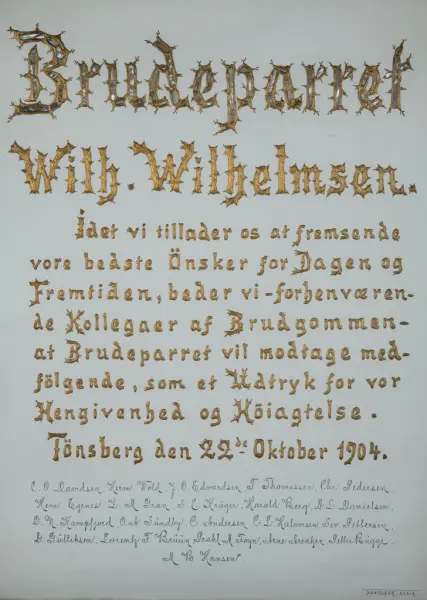 Brudeparret
Wilh. Wilhelmsen.
Idet vi tillader os at fremsende
vore bedste Önsker for Dagen og
Fremtiden, beder vi-forhenværen-
de Kollegaer af Brudgommen-
at Brudeparret vil modtage med-
fölgende, som et Udtryk for vor
Hengivenhed og Höiagtelse.
Tönsberg den 22de Oktober 1904.
C. O. Davidsen, Herm. Wold, J. O. Edvardsen, T. Thomassen, Chr. Pedersen,
L. M. Gran, S. E. Kröger, Harald Berg, A. L. Danielsen,
Kampfjord, Sundby, C. Andersen, C. L. Halvorsen, Pettersen,
Gulliksen, Lorentz F. Bruun, Petter Bugge
M. Bö Hansen